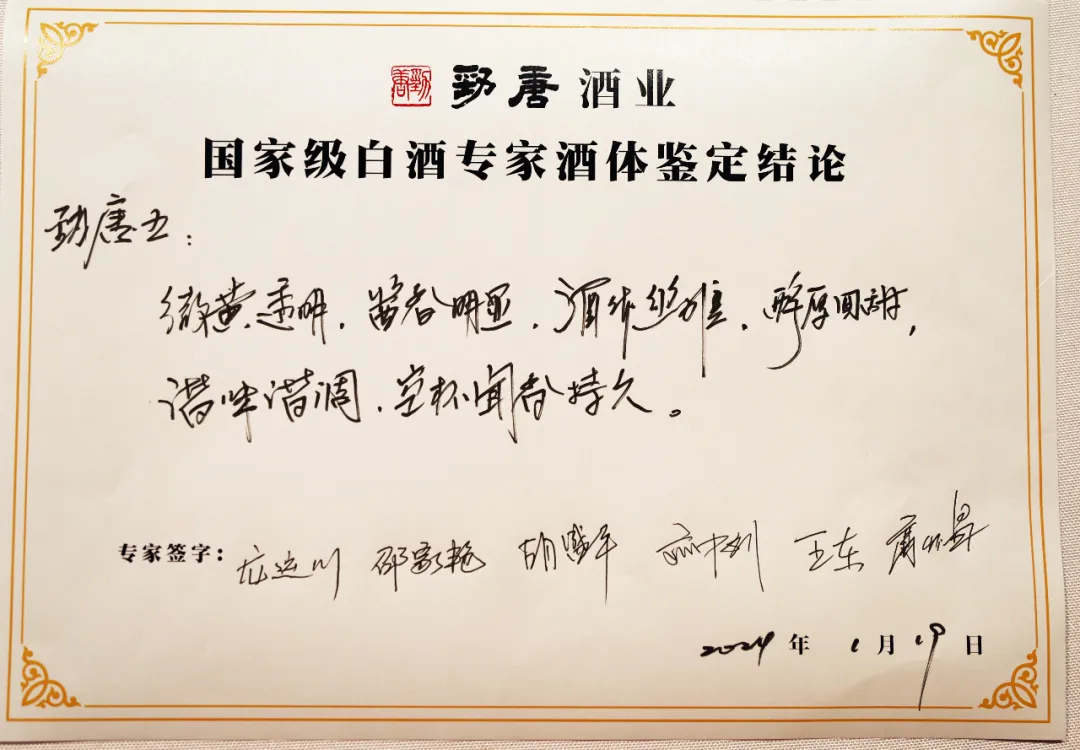 劲唐 劲唐酒业
国家级白酒专家酒体鉴定结论
劲唐五:
微黄透明,酱香明显,酒体幽雅,醇厚回甜,
谐味谐调,空杯闻香持久。
专家签字: 龙远川 邵家艳 胡盛平 王东
2024年1月19日